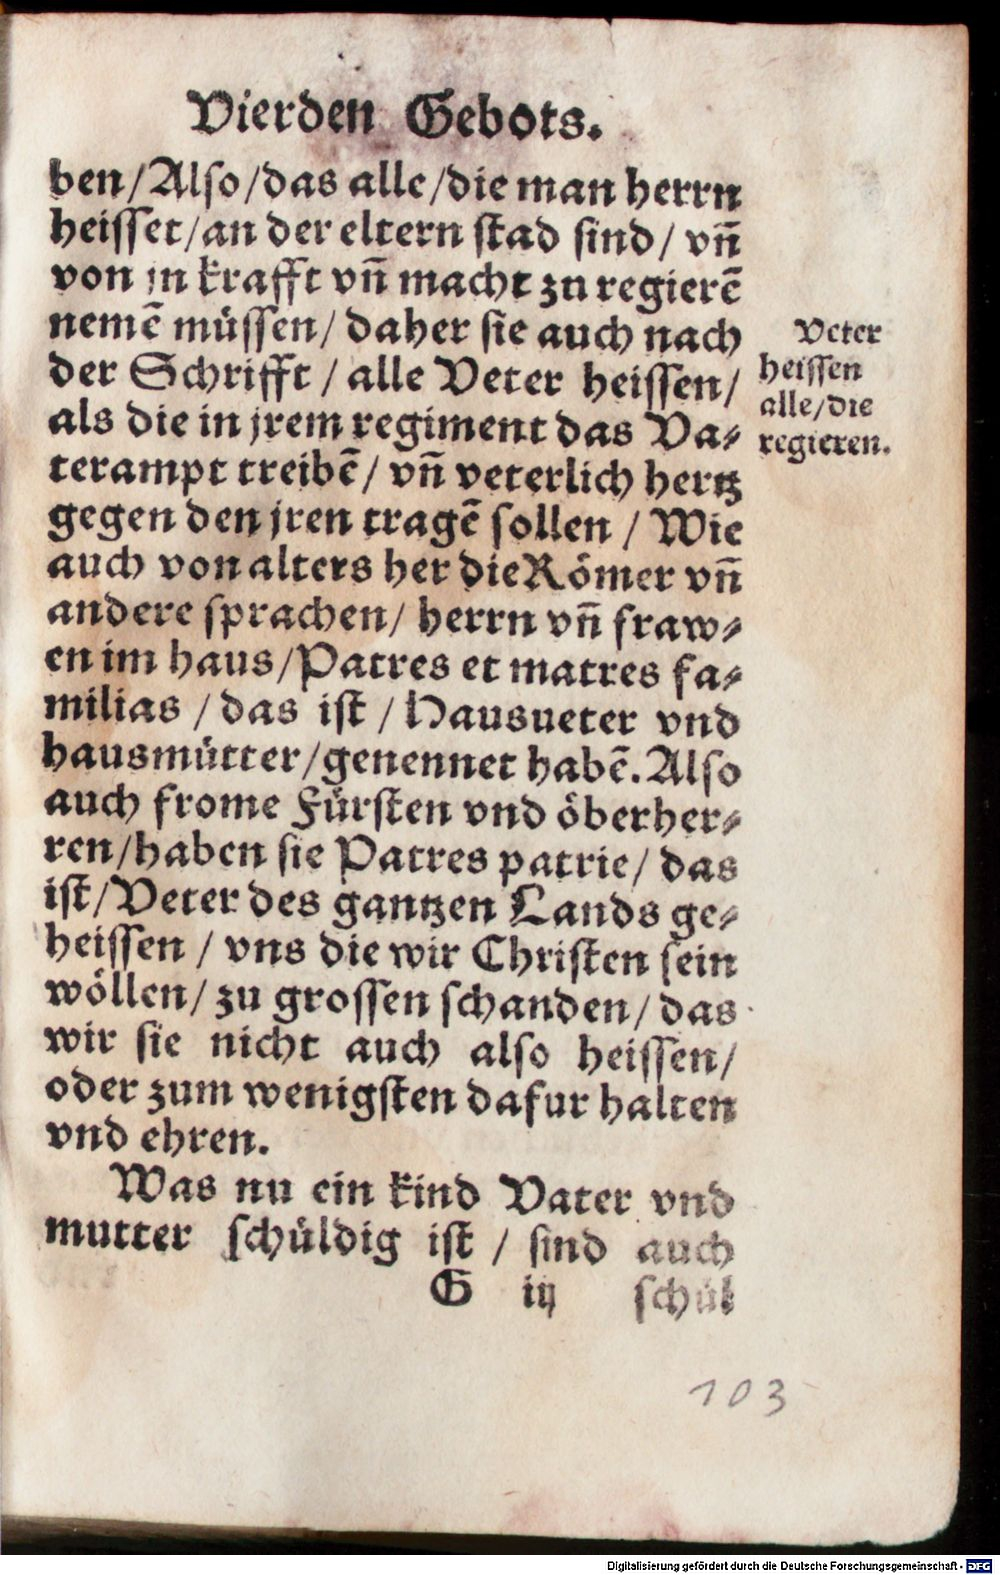 Vierden Gebots.
ben/Also/das alle/die man herrn
heisset/an der eltern stad sind/ vñ
von jn krafft vñ macht zu regierē
nemē müssen/ daher sie auch nach
der Schrifft / alle Veter heissen/
als die in jrem regiment das Va⸗
terampt treibē/ vñ veterlich hertz
gegen den jren tragē sollen / Wie
auch von alters her die Römer vñ
andere sprachen/ herrn vñ fraw⸗
en im haus/Patres et matres fa⸗
milias / das ist / Hausueter vnd
hausmütter/genennet habē. Also
auch frome Fürsten vnd öberher⸗
ren/haben sie Patres patrie/ das
ist/Veter des gantzen Lands ge⸗
heissen / vns die wir Christen sein
wöllen/ zu grossen schanden/ das
wir sie nicht auch also heissen/
oder zum wenigsten dafur halten
vnd ehren.
Was nu ein kind Vater vnd
mutter schüldig ist / sind auch
G iij schül
Veter
heissen
alle/die
regieren.
103
Digitalisierung gefördert durch die Deutsche Forschungsgemeinschaft - DFG